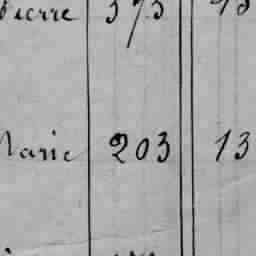 Pierre 375
Marie 203 13